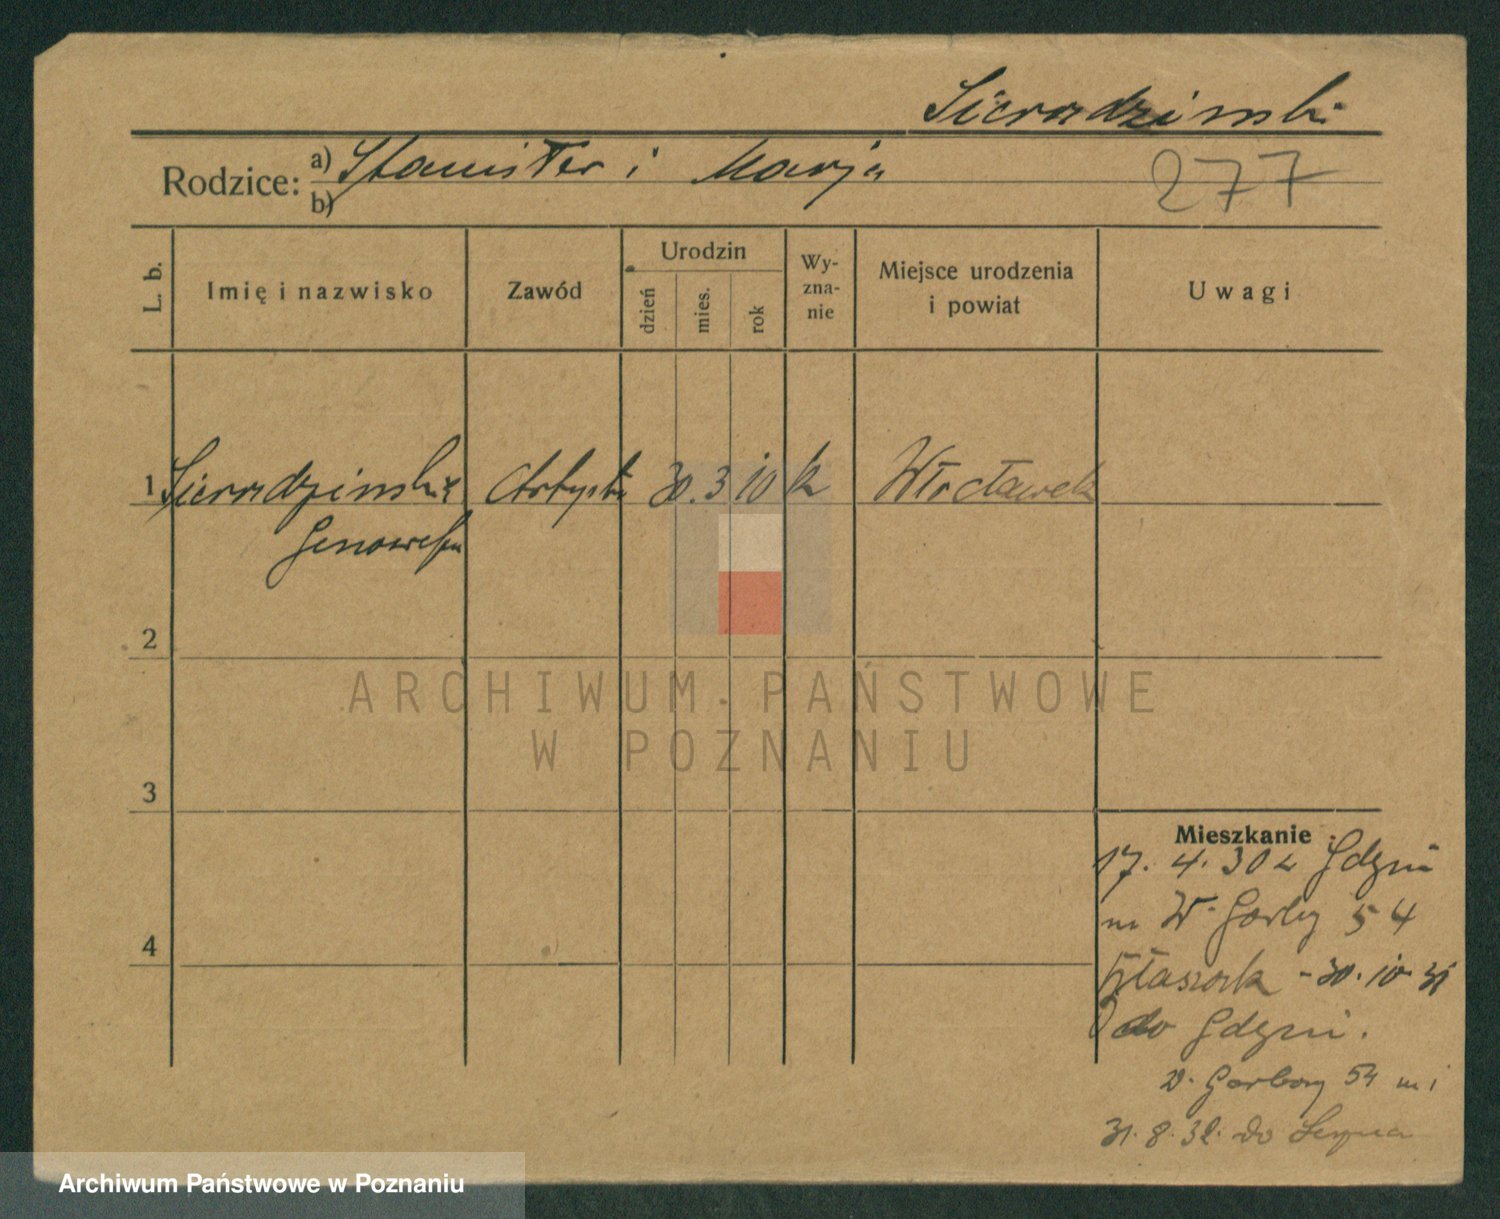 Sieradzinski
Rodzice: a) Stanisław i Marja
b)
277
L. b.
Imię i nazwisko
Zawód
Urodzin
dzień
mies.
rok
Wy-
zna-
nie
Miejsce urodzenia
i powiat
Uwagi
1 Sieradzinska Artystka 30. 3 10 k Włocławek
Genowefa
2
3
4
Mieszkanie
17. 4. 30 z Gdyni
W. Garbary 54
30. 10. 31
do Gdyni.
W. Garbary 54 m 1
31. 8. 32. do
ARCHIWUM PAŃSTWOWE
W POZNANIU
Archiwum Państwowe w Poznaniu